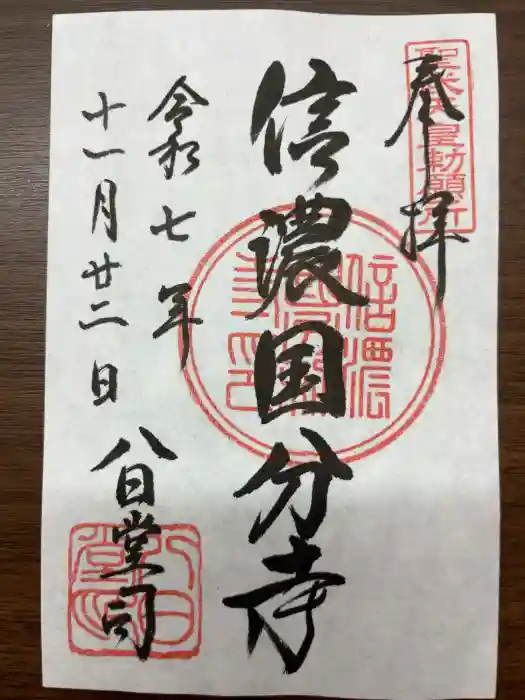 奉拝
聖武天皇勅願所
信濃国分寺
令和七年
十一月廿二日
八日堂司
八日堂印